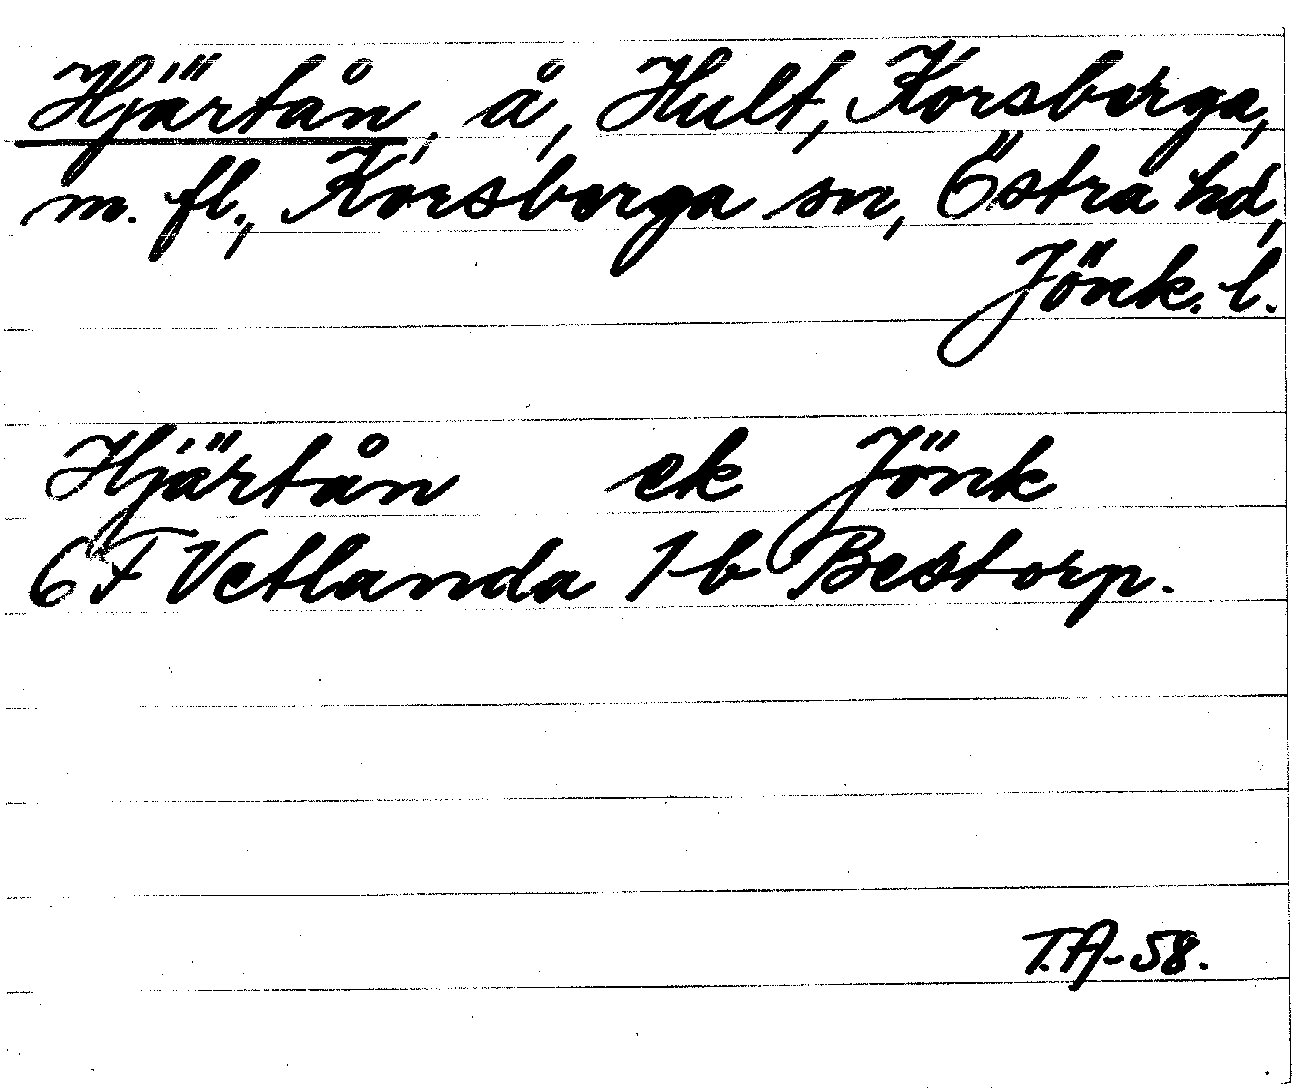 Hjärtån, å, Hult, Korsberga,
m. fl., Korsberga sn, Östra hd,
Jönk. l.
Hjärtån ek Jönk
6 F Vetlanda 1 b Bestorp.
T.A-58.